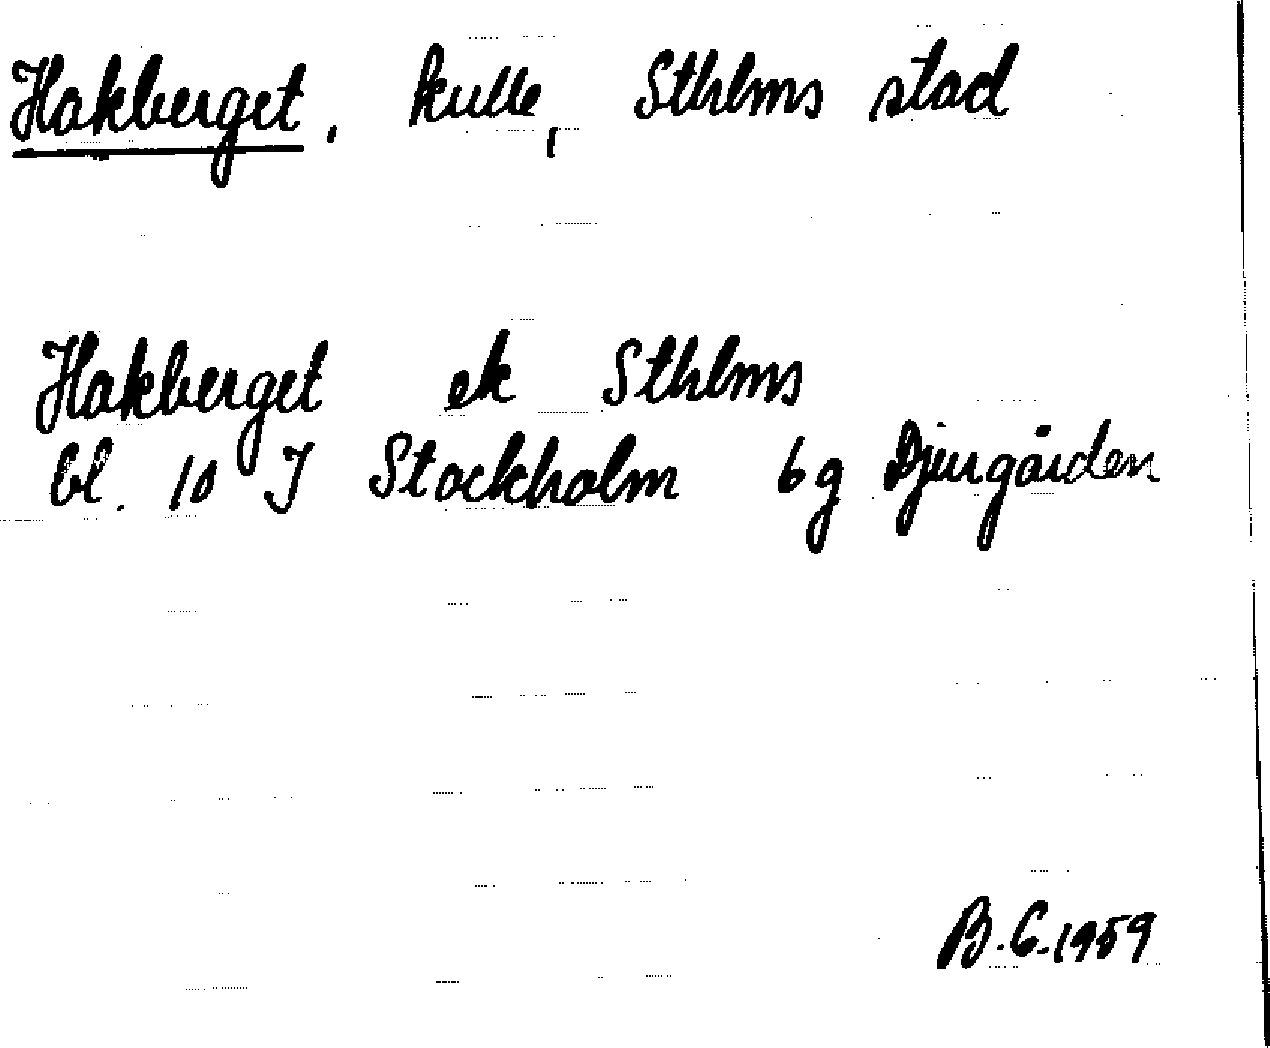 Hakberget, kulle, Sthlms stad
Hakberget ek Sthlms
bl. 10 J Stockholm 6g Djurgården
B.G. 1959